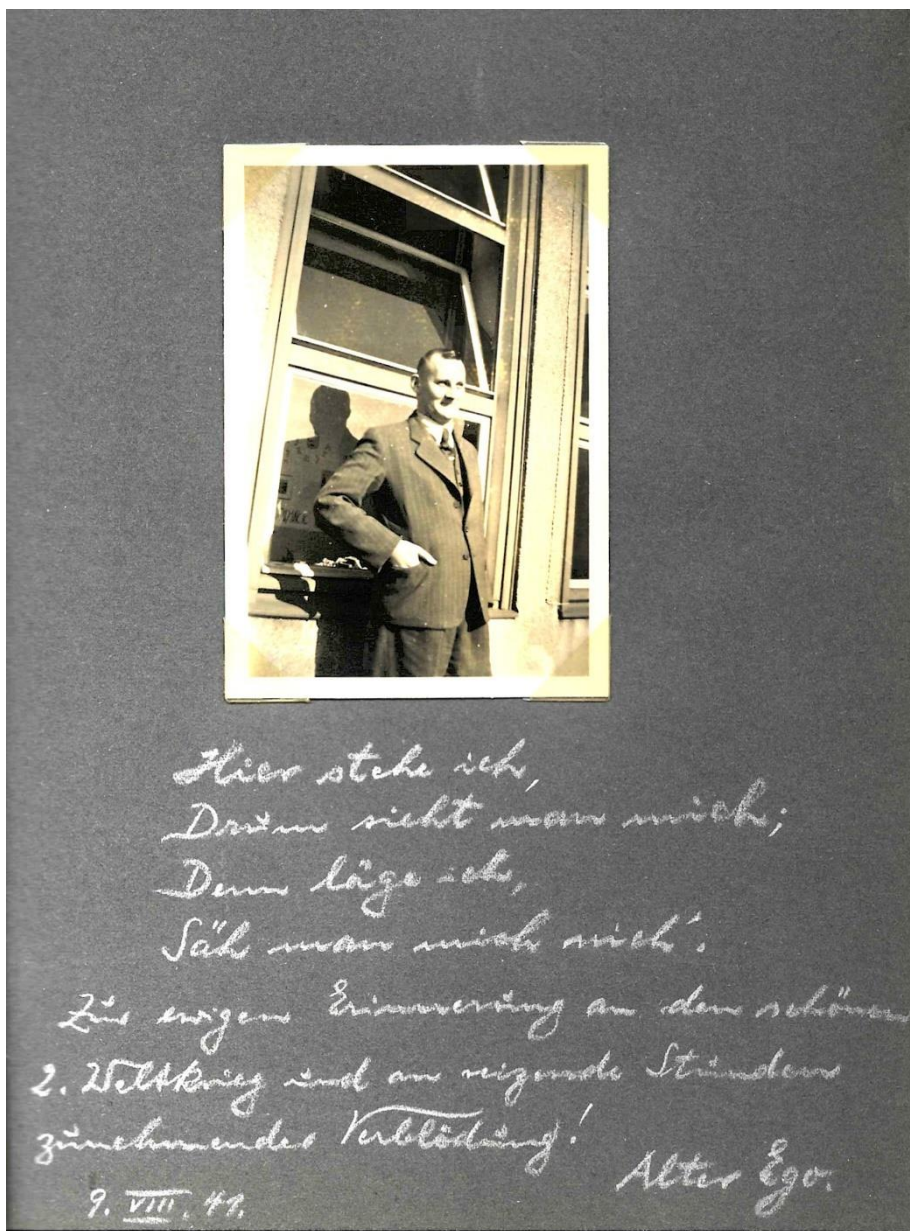 Hier stehe ich,
Drum sieht man mich;
Denn läge ich,
Säh man mich nich'.
Zur ewigen Erinnerung an den schönen
2. Weltkrieg und an reizende Stunden
zunehmender Verblödung!
Alter Ego.
9. VIII. 41.